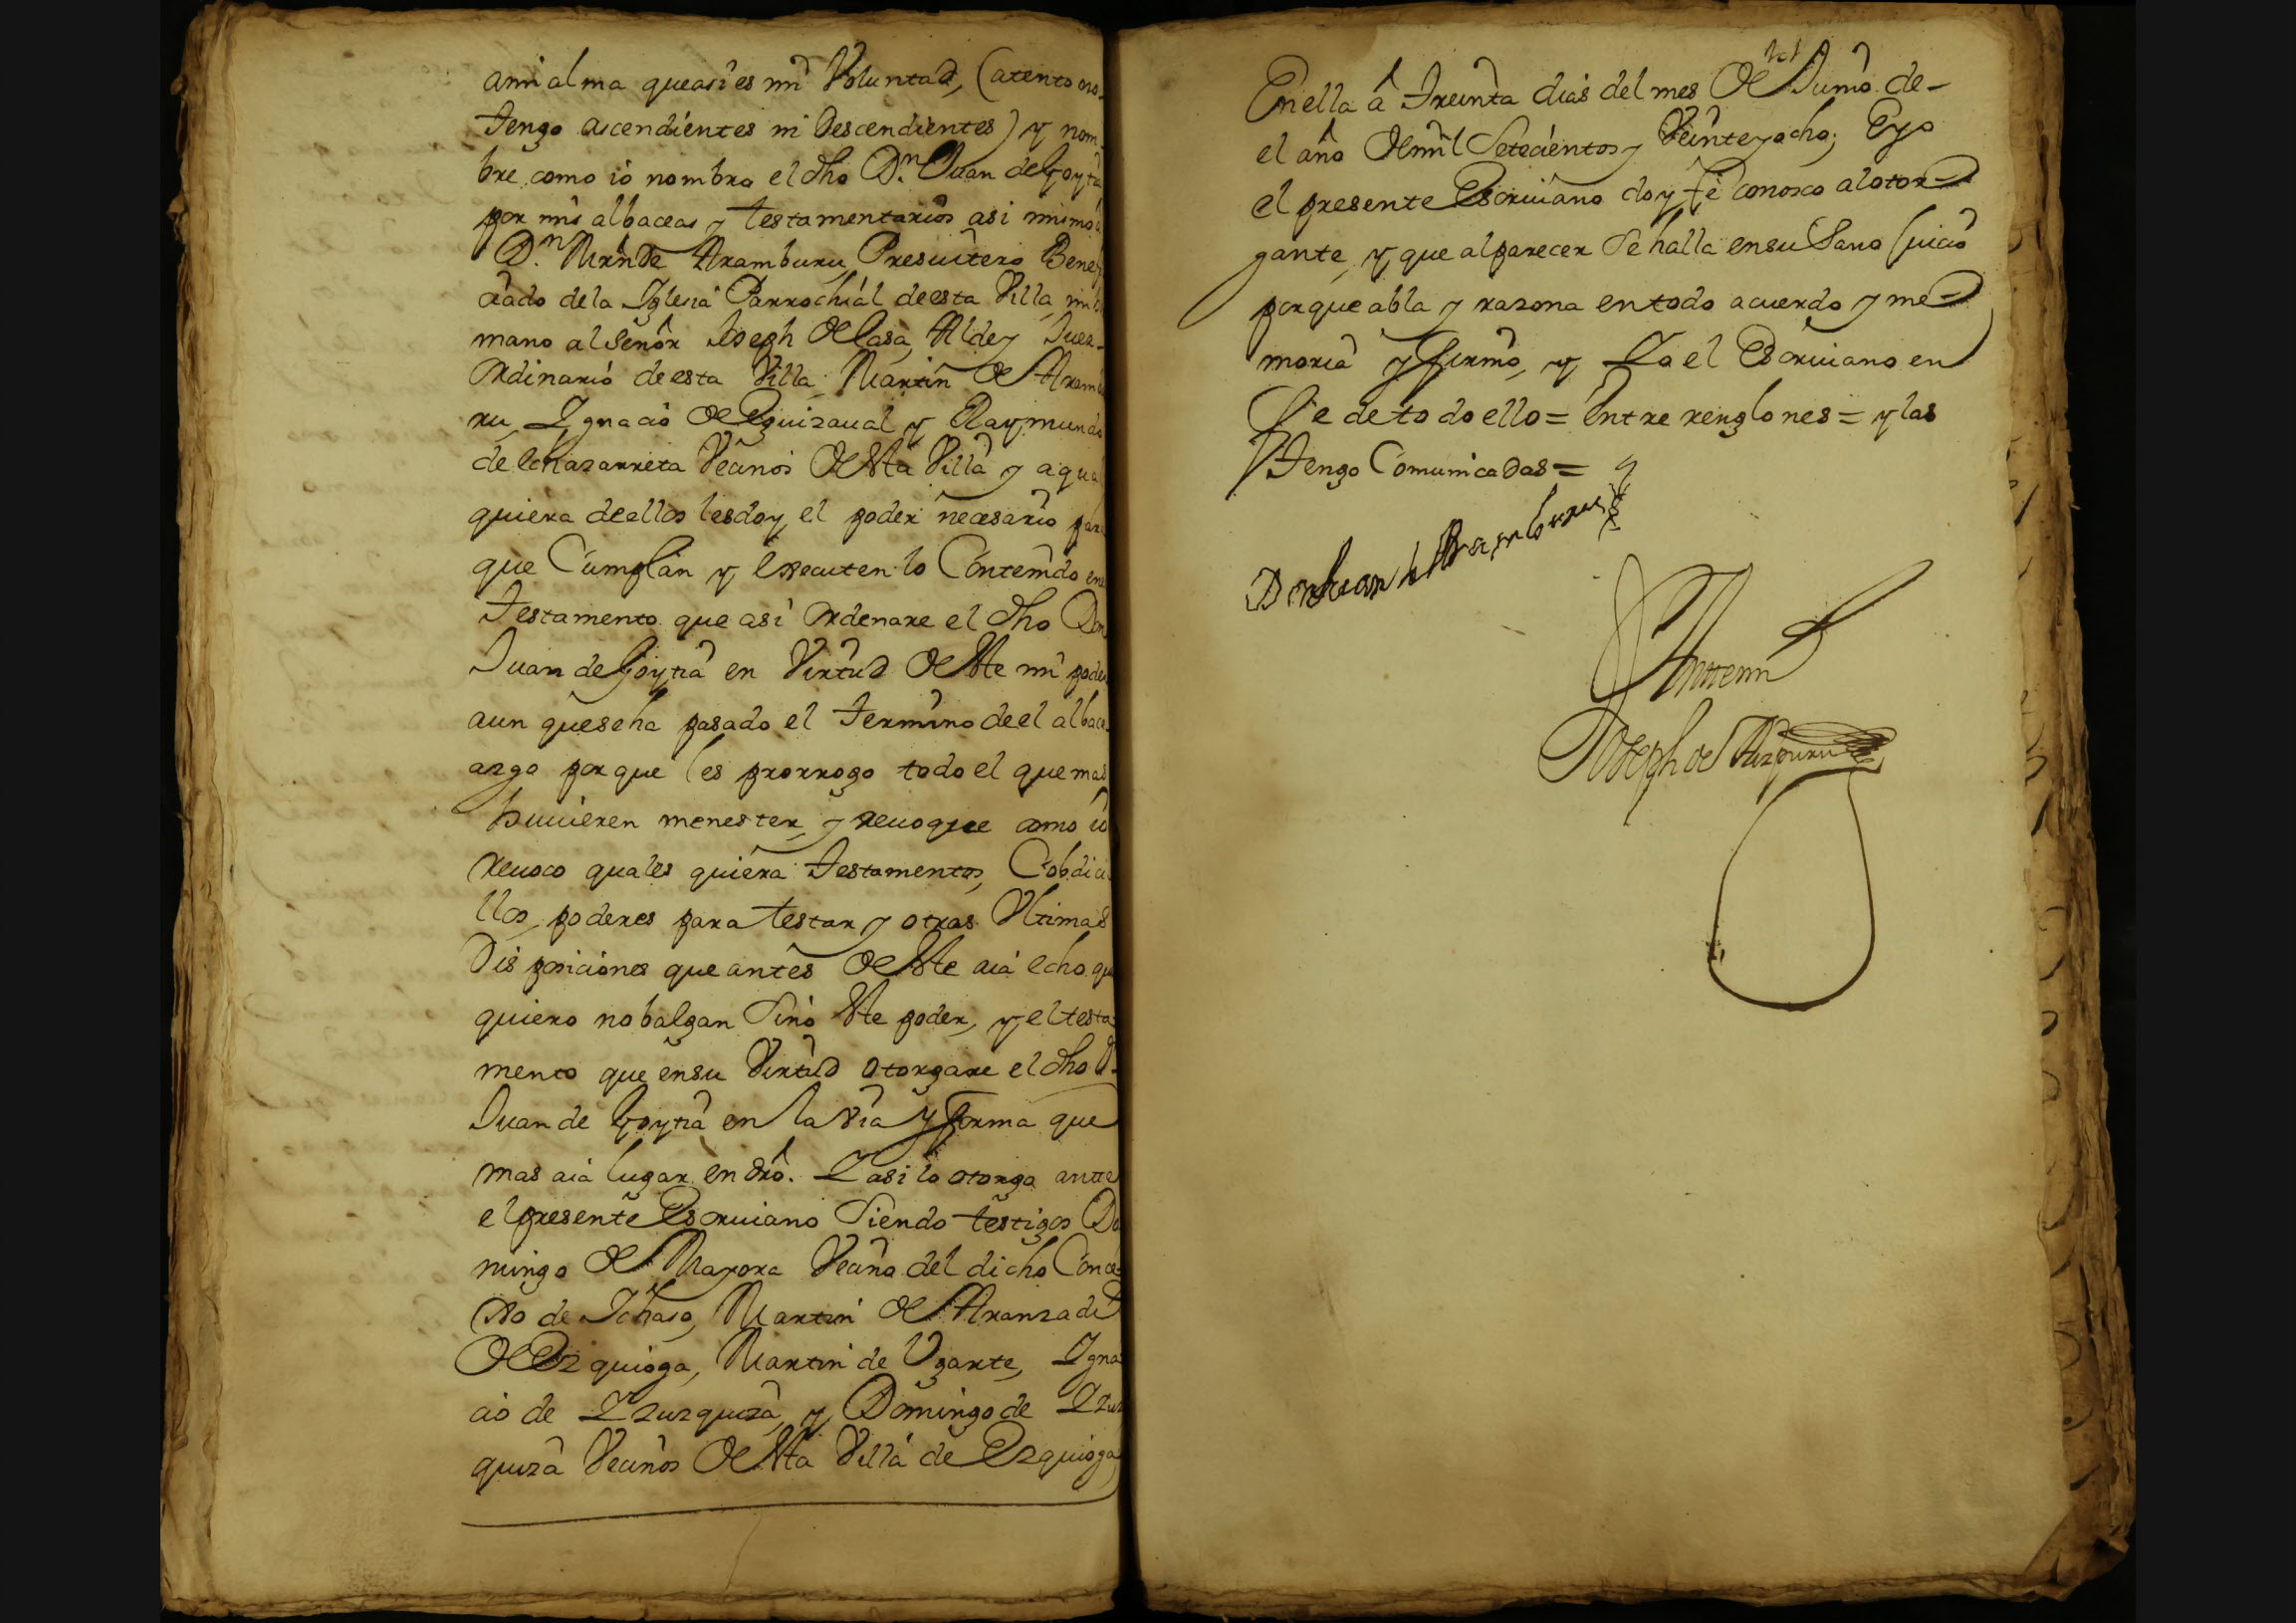 ami alma que asi es mi Voluntad, (atento no
tengo ascendientes ni Descendientes) y nom
bre como io nombro el dho Dn. Juan de Goytia
por mis albaceas y testamentarios asi mismo a
Dn. Mrn de Aramburu Presvitero Benefi
ciado de la Iglesia Parrochial de esta Villa, mi er
mano al Señor Joseph de Casa, Alde y Juez
Ordinario de esta Villa Martin de Arambu
ru, Ignacio de Eguizaual y Raymundo
de Echazarreta Vecinos de esta Villa y a qual
quiera de ellos les doy el poder necesario para
que Cumplan y executen lo Contenido en el
Testamento que asi Ordenare el dho Don
Juan de Goytia en Virtud de este mi poder
aun que se ha pasado el termino de el albace
azgo por que les prorrogo todo el que mas
huuieren menester, y reuoque como io
reuoco quales quiera testamentos, Cobdici
llos, poderes para testar y otras Vltimas
Disposiciones que antes de este aia echo que
quiero no balgan Sino este poder, y el testa
mento que en su Virtud otorgare el dho Dn
Juan de Goytia en la via y forma que
mas aia lugar en dro. Y asi lo otorga ante
el presente Escriuano Siendo testigos Do
mingo de Mayora Vecino del dicho Conce
jo de Ichaso, Martin de Aranzadi
de Ezquioga, Martin de Vgarte, Igna
cio de Yzuzquiza, y Domingo de Yzuz
quiza Vecinos de esta Villa de Ezquioga
En ella â treinta dias del mes de Junio de
el año de mil Setecientos y Veinte y ocho; E yo
el presente Escriuano doy fe conosco al otor
gante, y que al parecer Se halla en su Sano Juicio
porque abla y razona en todo acuerdo y me
moria y firmo, y Yo el Escriuano en
fe de todo ello = entre renglones = y las
tengo Comunicadas =
Don Juan de Aramburu
Antemi
Joseph de Aizpuru